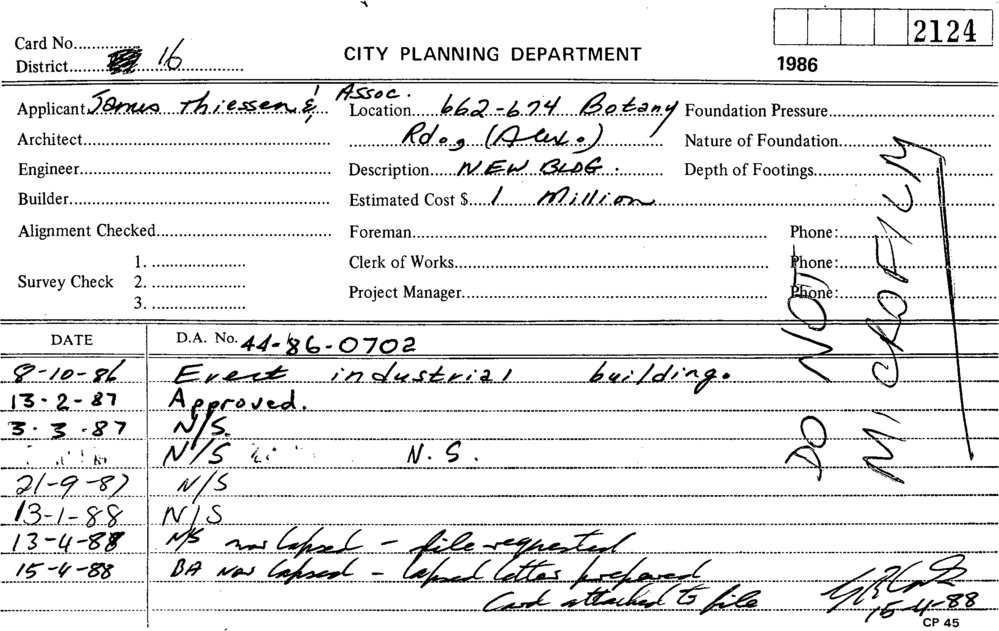 2124
Card No.
CITY PLANNING DEPARTMENT
District 16
1986
Applicant James Thiessen & Assoc.
Location 662-674 Botany
Foundation Pressure
Architect
Rd., (Alex.)
Nature of Foundation
Engineer
Description NEW BLDG.
Depth of Footings
Builder
Estimated Cost $ 1 Million
Alignment Checked
Foreman
Phone:
1.
Clerk of Works
Phone:
Survey Check 2.
Project Manager
Phone:
3.
DO NOT
MICROFILM
DATE
D.A. No. 44-86-0702
8-10-86 Erect industrial building.
13-2-87 Approved.
3.3.87 N/S.
N/S N.S.
21-9-87 N/S
13-1-88 N/S
13-4-88 N/S now lapsed - file requested
15-4-88 BA now lapsed - lapsed letter prepared
Card attached to file
15-4-88
CP 45